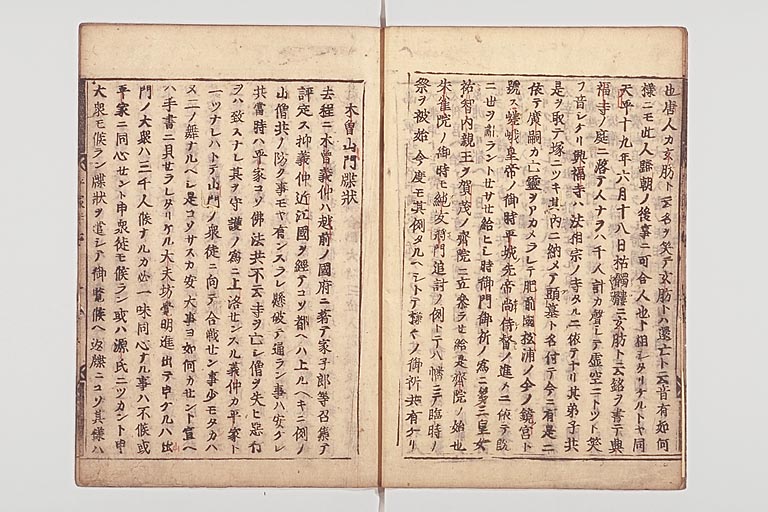 也唐人カ玄肪ト云名ヲ笑テ玄肪トハ還亡ト云音有如何
樣ニモ此人歸朝ノ後事ニ可合人也ト相シタリケルトヤ同
天平十九年六月十八日枯髑髏ニ玄肪ト云銘ヲ書テ興
福寺ノ庭ニ落テ人ナラハ千人計カ聲シテ虛空ニトツト笑
フ音シケリ興福寺ハ法相宗ノ寺タルニ依テナリ其弟子共
是ヲ取テ塚ニツキ其內ニ納メテ頭墓ト名付テ今ニ有是ニ
依テ廣嗣カ亡靈ヲアカメラレテ肥前國松浦ノ今ノ鏡宮ト
號ス嵯峨皇帝ノ御時平城先帝尚侍督ノ進メニ依テ既
ニ世ヲ亂ラントセサセ給ヒシ時御門御祈ノ為ニ第三皇女
祐智內親王ヲ賀茂ノ齋院ニ立奉ラセ給是齋院ノ始也
朱雀院ノ御時モ純友將門追討ノ例トテ八幡ニテ臨時ノ
祭ヲ被始今度モ其例タルヘシトテ樣々ノ御祈共有ケリ
木曾山門牒狀
去程ニ木曾義仲ハ越前ノ國府ニ著テ家子郎等召集テ
評定ス抑義仲近江國ヲ經テコソ都ヘハ上ルヘキニ例ノ
山僧共ノ防ク事モヤ有ンスラン縣破テ通ラン事ハ安ケレ
共當時ハ平家コソ佛法共不云寺ヲ亡シ僧ヲ失ヒ惡行
ヲハ致スナレ其ヲ守護ノ為ニ上洛センスル義仲カ平家ト
一ツナレハトテ山門ノ衆徒ニ向テ合戰セン事少モタカハ
ヌ二ノ舞ナルヘシ是コソサスカ安大事ヨ如何カセント宣ヘ
ハ手書ニ具セラレタリケル大夫坊覺明進出テ申ケルハ山
門ノ大衆ハ三千人候ナルカ必一味同心ナル事ハ不候或
平家ニ同心セント申衆徒モ候ラン或ハ源氏ニツカント申
大衆モ候ラン牒狀ヲ遣シテ御覽候ヘ返牒ニコソ其樣ハ